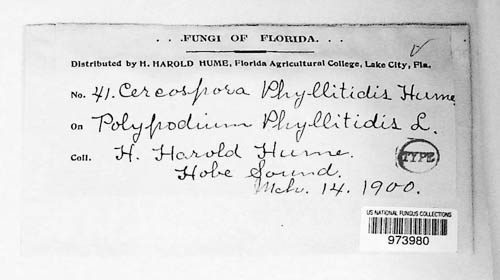 . . .FUNGI OF FLORIDA. . .
Distributed by H. HAROLD HUME, Florida Agricultural College, Lake City, Fla.
No. 41. Cercospora Phyllitidis Hume
On Polypodium Phyllitidis L.
Coll. H. Harold Hume.
TYPE
Hobe Sound.
Mch. 14. 1900.
US NATIONAL FUNGUS COLLECTIONS
973980